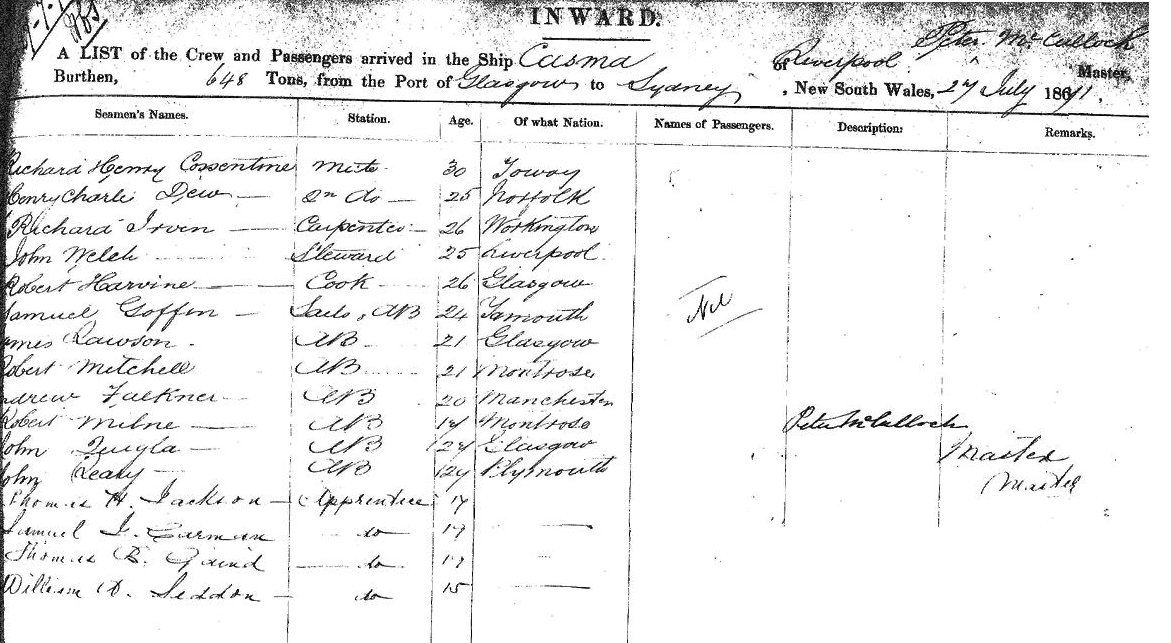 INWARD.
A LIST of the Crew and Passengers arrived in the Ship Casma of Liverpool Peter McCulloch Master,
Burthen, 648 Tons, from the Port of Glasgow to Sydney, New South Wales, 27 July 18
Seamen's Names. Station. Age. Of what Nation. Names of Passengers. Description: Remarks.
Richard Henry Cossentine Mate 30 Fowey
Henry Charls Dew 2n do 25 Norfolk
Richard Irven Carpenter 26 Workington
John Welch Steward 25 Liverpool
Robert Harvine Cook 26 Glasgow
Samuel Goffin Sails, AB 24 Yamouth Nil
James Lawson AB 21 Glasgow
Robert Mitchell AB 21 Montrose
Andrew Faulkner AB 20 Manchester
Robert Milne AB 19 Montrose Peter McCulloch
John Quigla AB 24 Glasgow Master
John Leary AB 24 Plymouth Master
Thomas H. Jackson Apprentice 17
Samuel do 19
Thomas B. do
William Seddon do 15